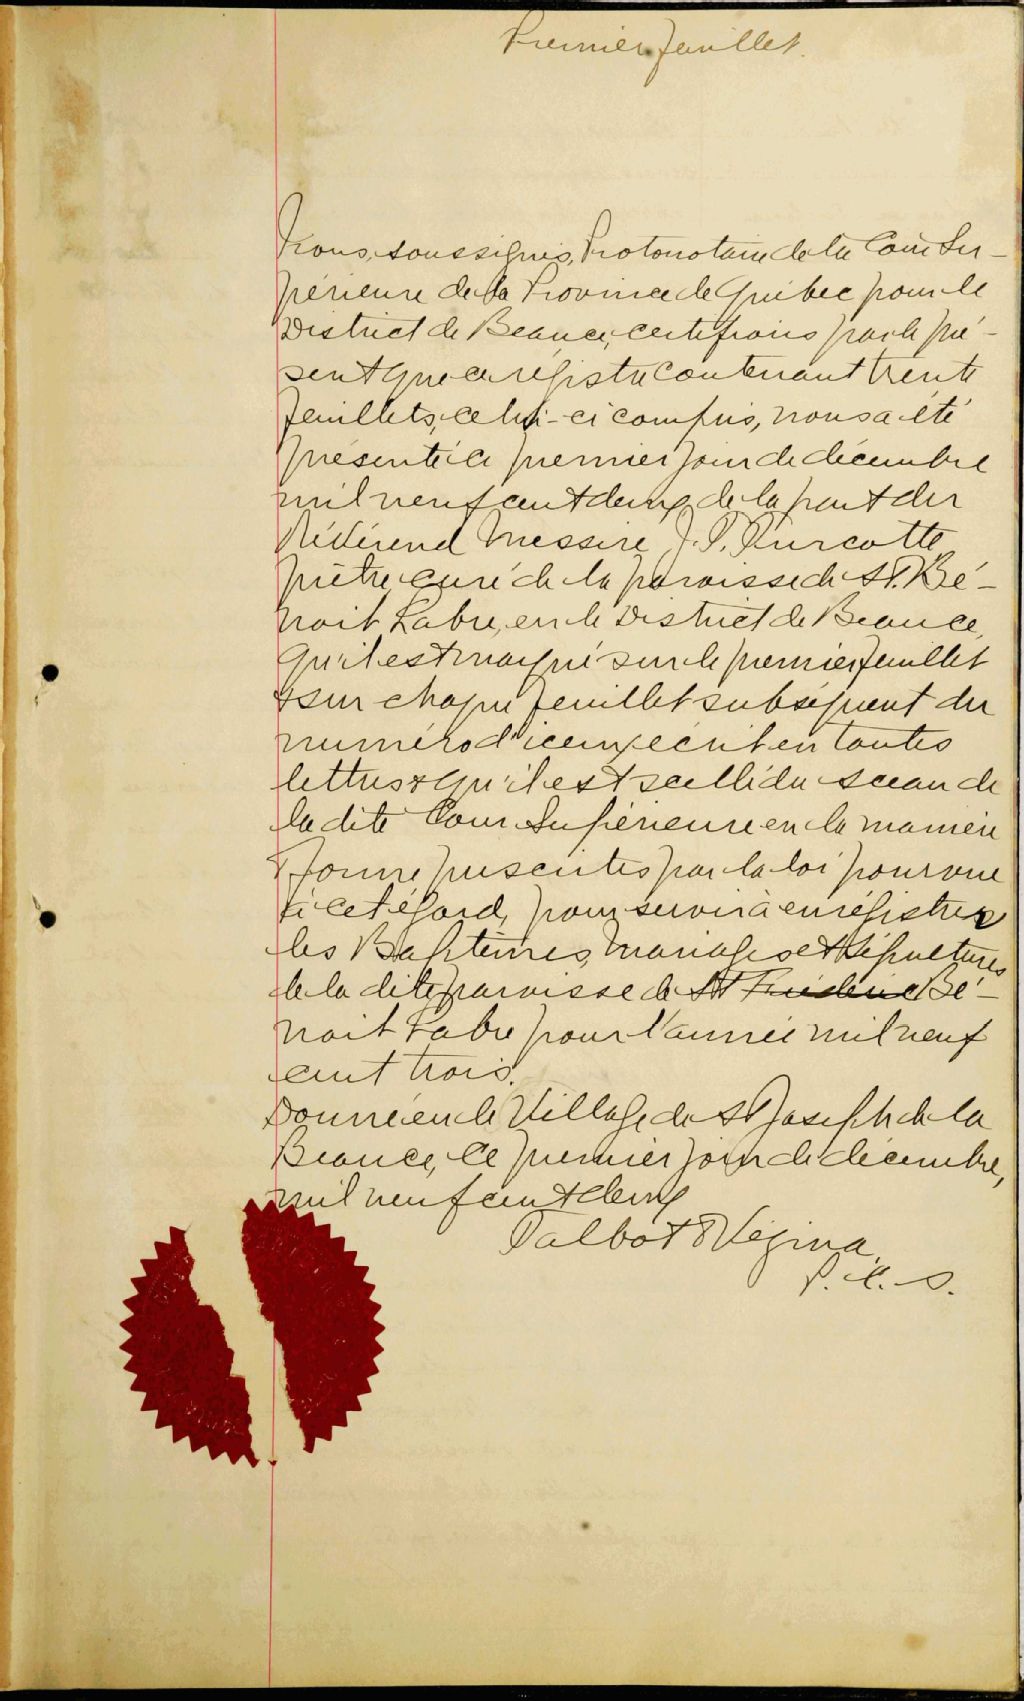 Premier feuillet.
Nous, soussignés, Protonotaire de la Cour Su-
périeure de la Province de Québec pour le
District de Beauce, certifions par le pré-
sent que ce régistre contenant trente
feuillets, celui-ci compris, nous a été
présenté ce premier jour de décembre
mil neuf cent deux, de la part du
Révérend Messire J. P. Turcotte
prêtre, curé de la paroisse de St. Bé-
noit Labre, en le District de Beauce,
qu'il est marqué sur le premier feuillet
& sur chaque feuillet subséquent du
numéro d'iceux écrit en toutes
lettres & qu'il est scellé du sceau de
la dite Cour Supérieure en la manière
& forme prescrites par la loi pourvue
à cet égard, pour servir à enrégistrer
les Baptêmes, Mariages et Sépultures
de la dite paroisse de St Frédéric Bé-
noit Labre pour l'année mil neuf
cent trois.
Donné en le Village de St Joseph de la
Beauce, ce premier jour de décembre,
mil neuf cent deux
Talbot & Vézina,
P. C. S.